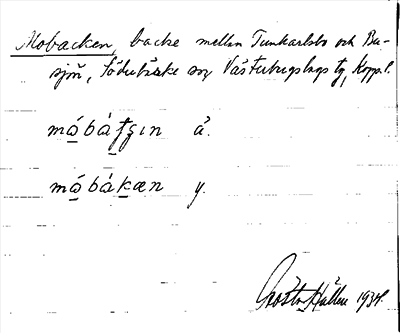 Mobacken, backe mellan Tunkarlsbo och Bu-
sjön, Söderbärke sog Västerbergslags tg, Kopp. l.
må̱bátʒın å.
må̱báḵæn y.
Gösta Hallen 1934.